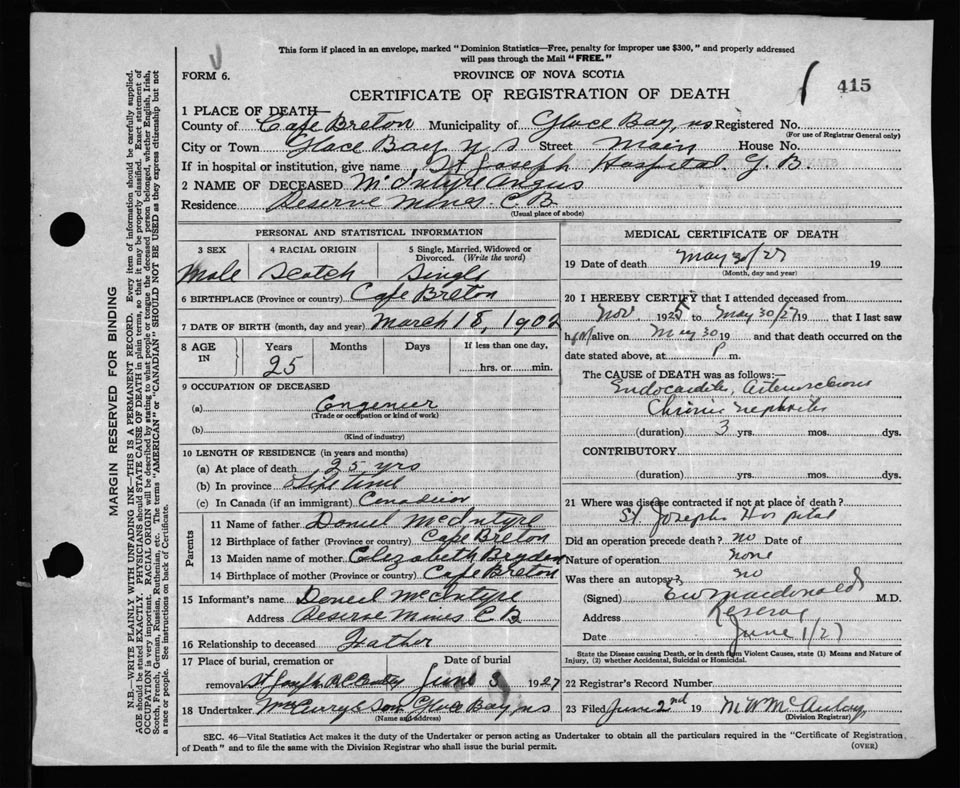 This form if placed in an envelope, marked "Dominion Statistics—Free, penalty for improper use $300," and properly addressed
will pass through the Mail "FREE."
FORM 6.
PROVINCE OF NOVA SCOTIA
415
CERTIFICATE OF REGISTRATION OF DEATH
1 PLACE OF DEATH—
County of Cape Breton Municipality of Glace Bay, NS Registered No.
(For use of Registrar General only)
City or Town Glace Bay N S Street Main House No.
If in hospital or institution, give name St Joseph Hospital. G. B.
2 NAME OF DECEASED McIntyre Angus
Residence Reserve Mines. C B
(Usual place of abode)
PERSONAL AND STATISTICAL INFORMATION
3 SEX
4 RACIAL ORIGIN
5 Single, Married, Widowed or
Divorced. (Write the word)
Male Scotch Single
6 BIRTHPLACE (Province or country) Cape Breton
7 DATE OF BIRTH (month, day and year) March 18, 1902
8 AGE
IN
Years
Months
Days
If less than one day,
25
hrs. or min.
9 OCCUPATION OF DECEASED
(a) Engenier
(Trade or occupation or kind of work)
(b)
(Kind of industry)
10 LENGTH OF RESIDENCE (in years and months)
(a) At place of death 25 yrs
(b) In province Life Time
(c) In Canada (if an immigrant) Canadian
Parents
11 Name of father Daniel McIntyre
12 Birthplace of father (Province or country) Cape Breton
13 Maiden name of mother Elizabeth Bryden
14 Birthplace of mother (Province or country) Cape Breton
15 Informant's name Daniel McIntyre
Address Reserve Mines C B
16 Relationship to deceased Feather
17 Place of burial, cremation or
Date of burial
removal St Joseph R C June 3 1927
18 Undertaker Son Glace Bay, NS
(Name and address)
MEDICAL CERTIFICATE OF DEATH
19 Date of death May 30/27 19
(Month, day and year)
20 I HEREBY CERTIFY that I attended deceased from
Nov. 1925 to May 30/27 19 that I last saw
h im alive on May 30 19 and that death occurred on the
date stated above, at P m.
The CAUSE of DEATH was as follows:—
Endocarditis, Arteriosclerosis
Chronic Nephritis
(duration) 3 yrs. mos. dys.
CONTRIBUTORY
(duration) yrs. mos. dys.
21 Where was disease contracted if not at place of death?
St Josephs Hospital
Did an operation precede death? no Date of
Nature of operation none
Was there an autopsy? no
(Signed) MacDonald M.D.
Address Reserve
Date June 1/27
State the Disease causing Death, or in death from Violent Causes, state (1) Means and Nature of
Injury, (2) whether Accidental, Suicidal or Homicidal.
22 Registrar's Record Number
23 Filed June 2nd 19 M W McAulay
(Division Registrar)
SEC. 46—Vital Statistics Act makes it the duty of the Undertaker or person acting as Undertaker to obtain all the particulars required in the "Certificate of Registration
of Death" and to file the same with the Division Registrar who shall issue the burial permit.
(OVER)
MARGIN RESERVED FOR BINDING
N.B.—WRITE PLAINLY WITH UNFADING INK—THIS IS A PERMANENT RECORD. Every item of information should be carefully supplied.
AGE should be stated EXACTLY. PHYSICIANS should STATE CAUSE OF DEATH in plain terms, so that it may be properly classified. Exact statement of
OCCUPATION is very important. RACIAL ORIGIN will be described by stating to what people or tongue the deceased person belonged, whether English, Irish,
Scotch, French, German, Russian, Ruthenian, etc. The terms "AMERICAN" or "CANADIAN" SHOULD NOT BE USED as they express citizenship but not
a race or people. See instructions on back of Certificate.